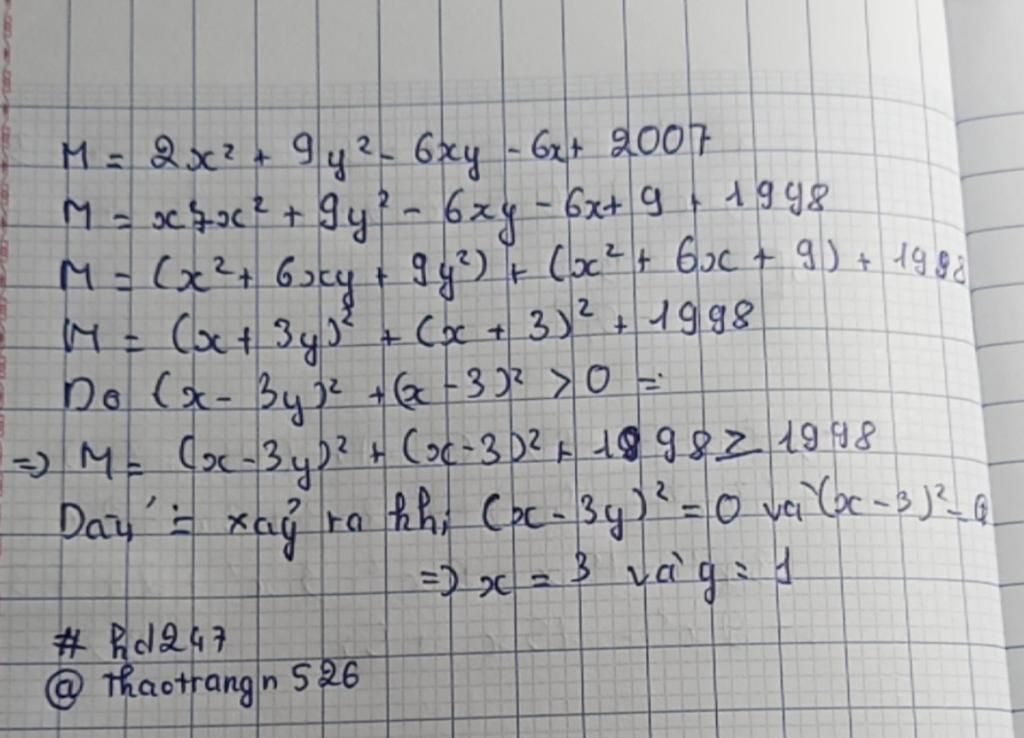 M = 2x² + 9y² - 6xy - 6x + 2007
M = x² + x² + 9y² - 6xy - 6x + 9 + 1998
M = (x² + 6xy + 9y²) + (x² + 6x + 9) + 1998
M = (x + 3y)² + (x + 3)² + 1998
Do (x - 3y)² + (x - 3)² > 0 =
=> M = (x - 3y)² + (x - 3)² + 1998 ≥ 1998
Dấu '=' xảy ra khi (x - 3y)² = 0 và (x - 3)² = 0
=> x = 3 và y = 1
# hd247
@ Thaotrangn 526